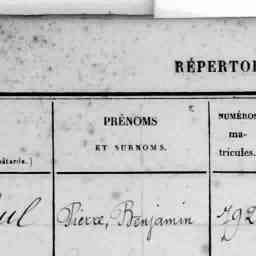 RÉPERTOI
PRÉNOMS
ET SURNOMS.
NUMÉROS
ma-
tricules.
Pierre, Benjamin
792